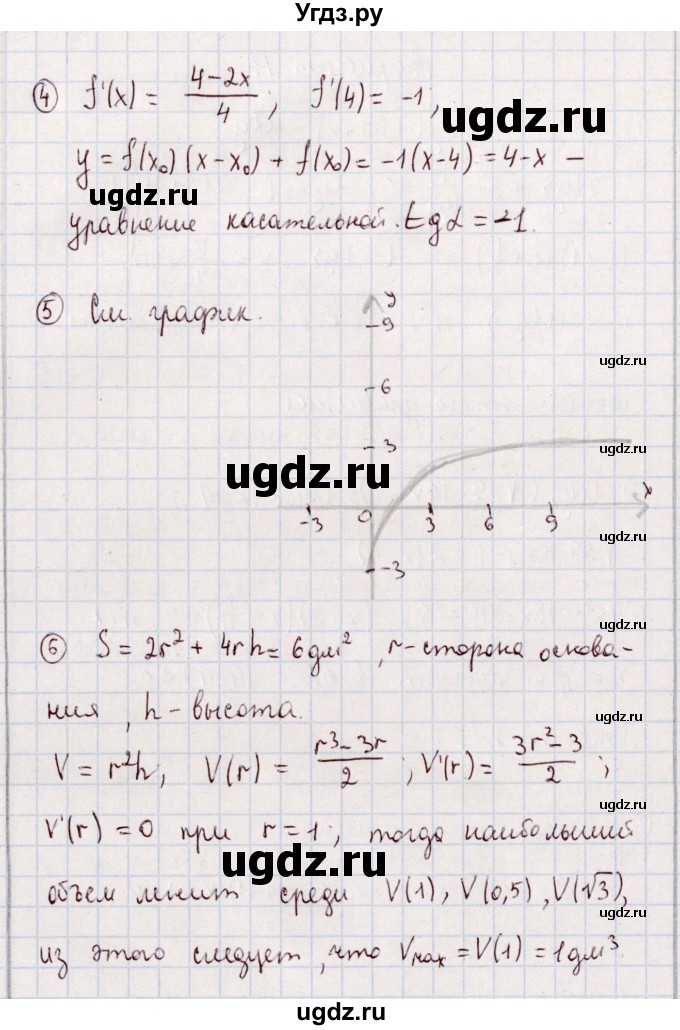 Угдз.ру
④ f'(x) = (4-2x)/4; f'(4) = -1,
y = f(x₀)(x-x₀) + f(x₀) = -1(x-4) = 4-x -
ugdz.ru
ugdz.ru
уравнение касательной. tgα = -1.
⑤ См. график.
y
9
ugdz.ru
6
ugdz.ru
3
ugdz.ru
x
-3 0 3 6 9
ugdz.ru
-3
⑥ S = 2r² + 4rh = 6дм², r-сторона основа-
ugdz.ru
ния, h-высота.
ugdz.ru
V = r²h, V(r) = (r³-3r)/2; V'(r) = (3r²-3)/2;
V'(r) = 0 при r = 1, тогда наибольший
ugdz.ru
объем лежит среди V(1), V(0,5), V(√3),
ugdz.ru
из этого следует, что Vмах = V(1) = 1дм³.
ugdz.ru